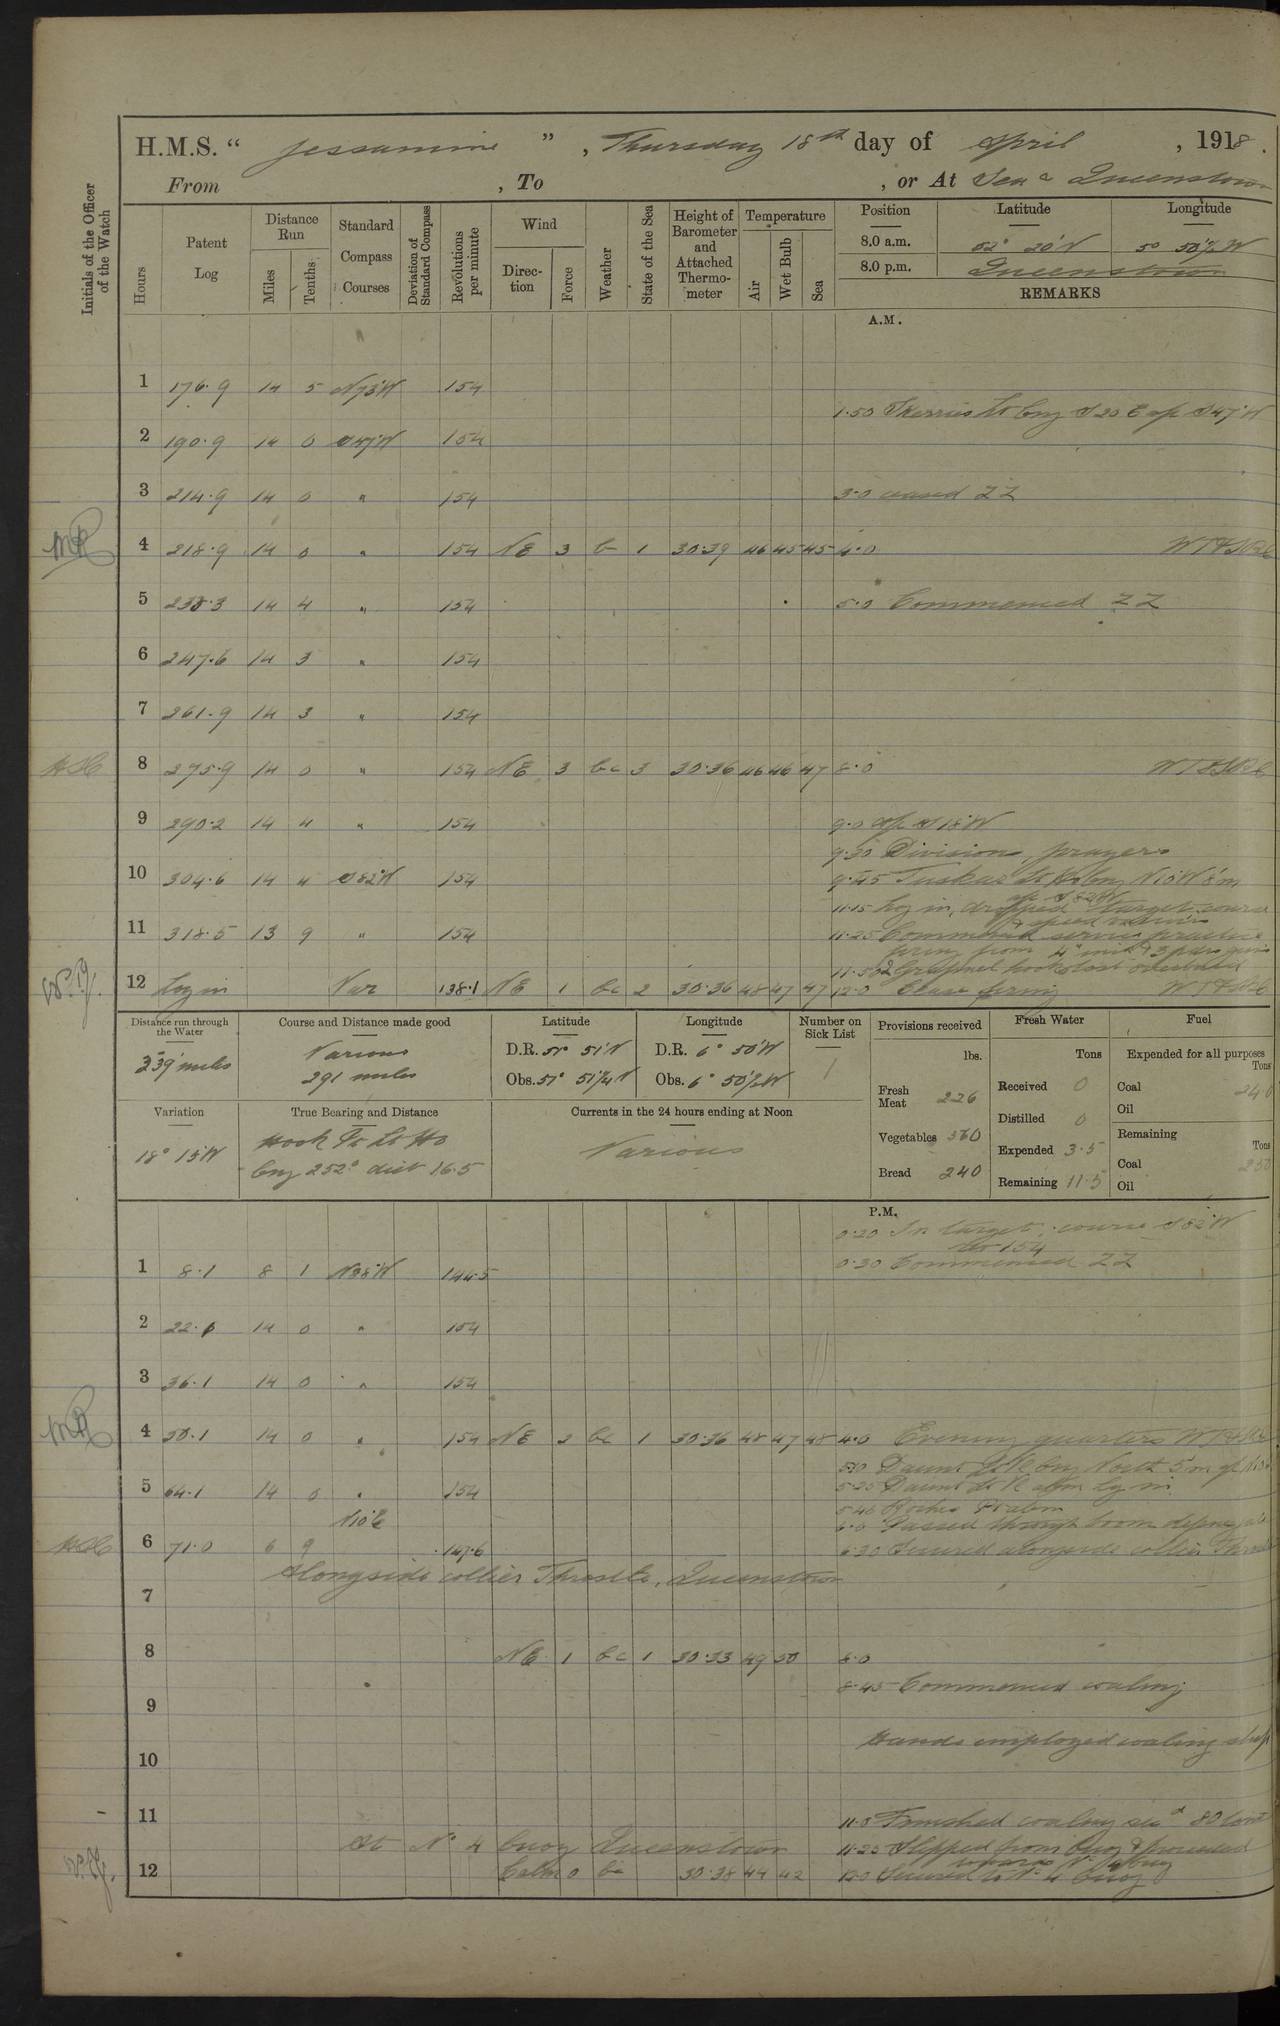 H.M.S. " Jessamine ", Thursday 18th day of April, 1918.
From , To , or At Sea & Queenstown
Initials of the Officer of the Watch
Hours
Patent Log
Distance Run
Miles
Tenths
Standard Compass Courses
Deviation of Standard Compass
Revolutions per minute
Wind
Direction
Force
Weather
State of the Sea
Height of Barometer and Attached Thermometer
Temperature
Air
Wet Bulb
Sea
Position Latitude Longitude
8.0 a.m. 52° 20'N 5° 50½'W
8.0 p.m. Queenstown
REMARKS
A.M.
1 176.9 14 5 N73W 154
1.50 Skerries Lt brg S20E a/c S47W
2 190.9 14 0 S47W 154
3 214.9 14 0 " 154 3.0 ceased ZZ
4 218.9 14 0 " 154 NE 3 b 1 30.39 46 45 45 4.0
5 233.3 14 4 " 154 5.0 Commenced ZZ
6 247.6 14 3 " 154
7 261.9 14 3 " 154
8 275.9 14 0 " 154 NE 3 bc 3 30.36 46 46 47 8.0
9 290.2 14 4 " 154 9.0 a/c S18W
9.30 Divisions, prayers
10 304.6 14 4 S82W 154 9.45 Tuskar Lt Ho brg N10W 8'm
a/c S82W
11.15 Log in, dropped target, course
& speed various
11 318.5 13 9 " 154 11.25 Commenced service practice
firing from 4" and 3 pdrs guns
11.50 2 Grapnel hooks lost overboard
12 Log in Var 138.1 NE 1 bc 2 30.36 48 47 47 12.0 Cease firing
Distance run through the Water
339 miles
Course and Distance made good
Various
291 miles
Latitude
D.R. 51° 51'N
Obs. 51° 51¼N
Longitude
D.R. 6° 50'W
Obs. 6° 50½W
Number on Sick List
1
Provisions received
lbs.
Fresh Meat 226
Vegetables 360
Bread 240
Fresh Water
Tons
Received 0
Distilled 0
Expended 3.5
Remaining 11.5
Fuel
Expended for all purposes
Tons
Coal 24.0
Oil
Remaining
Tons
Coal 250
Oil
Variation
18° 15'W
True Bearing and Distance
Hook Pt Lt Ho
brg 252° dist 16.5
Currents in the 24 hours ending at Noon
Various
P.M.
0.20 In target, course S82W
154
1 8.1 8 1 N88W 144.5 0.30 Commenced ZZ
2 22.1 14 0 " 154
3 36.1 14 0 " 154
4 50.1 14 0 " 154 NE 2 bc 1 30.36 48 47 48 4.0 Evening quarters
5.10 Daunt Lt V brg North 5'm
5 64.1 14 0 " 154 5.25 Daunt Lt V abm Log in
N10E
5.40 Roches Pt abm
6.0 Passed through boom defence
6 71.0 6 9 147.6 6.30 Secured alongside collier
Alongside collier Throstle, Queenstown
7
8 NE 1 bc 1 30.33 49 50 8.0
8.45 Commenced coaling
9
Hands employed coaling ship
10
11 11.0 Finished coaling recd 80 tons
At No 4 buoy Queenstown
11.25 Slipped from buoy & proceeded
towards No 4 buoy
12 Calm 0 bc 30.38 44 42 12.0 Secured to No 4 buoy